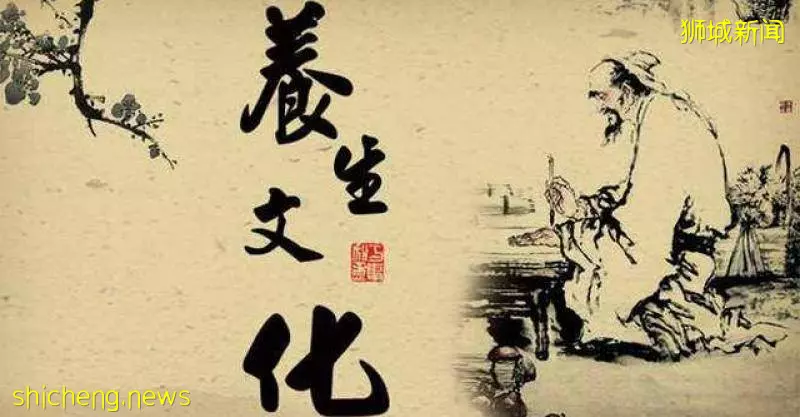 狮城新闻
養
生
文
化
shicheng.news